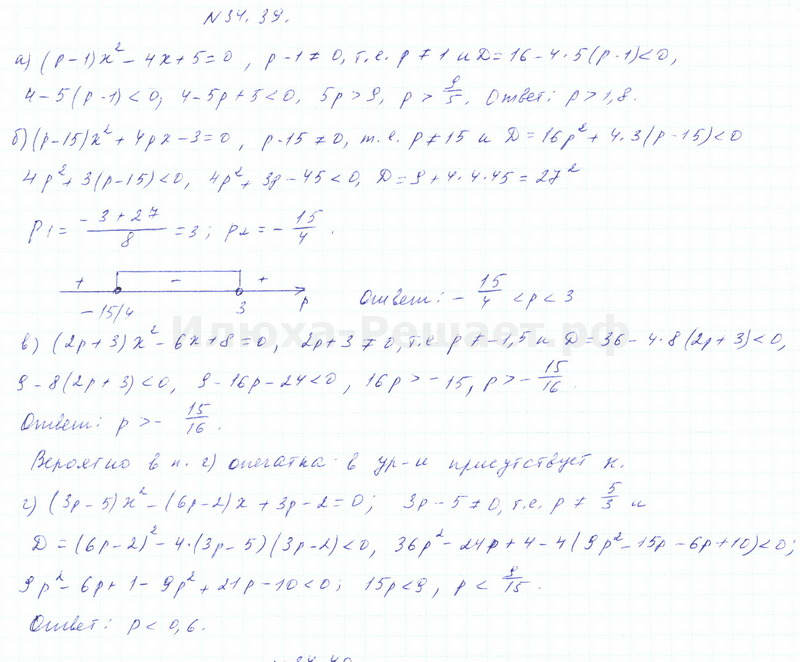 №34.39.
а) (p-1)x² - 4x + 5 = 0, p-1 ≠ 0, т.е. p ≠ 1 и D = 16 - 4·5(p-1) < 0,
4 - 5(p-1) < 0; 4 - 5p + 5 < 0, 5p > 9, p > 9/5. Ответ: p > 1,8.
б) (p-15)x² + 4px - 3 = 0, p-15 ≠ 0, т.е. p ≠ 15 и D = 16p² + 4·3(p-15) < 0
4p² + 3(p-15) < 0, 4p² + 3p - 45 < 0, D = 9 + 4·4·45 = 27²
p1 = (-3+27)/8 = 3; p2 = -15/4.
+ - +
-15/4 3 p
Ответ: -15/4 < p < 3
Илюха-Решает.рф
в) (2p+3)x² - 6x + 8 = 0, 2p+3 ≠ 0, т.е. p ≠ -1,5 и D = 36 - 4·8(2p+3) < 0,
9 - 8(2p+3) < 0, 9 - 16p - 24 < 0, 16p > -15, p > -15/16.
Ответ: p > -15/16.
Вероятно в п. г) опечатка в ур-и присутствует x.
г) (3p-5)x² - (6p-2)x + 3p - 2 = 0; 3p-5 ≠ 0, т.е. p ≠ 5/3 и
D = (6p-2)² - 4·(3p-5)(3p-2) < 0, 36p² - 24p + 4 - 4(9p² - 15p - 6p + 10) < 0;
9p² - 6p + 1 - 9p² + 21p - 10 < 0; 15p < 9, p < 9/15.
Ответ: p < 0,6.